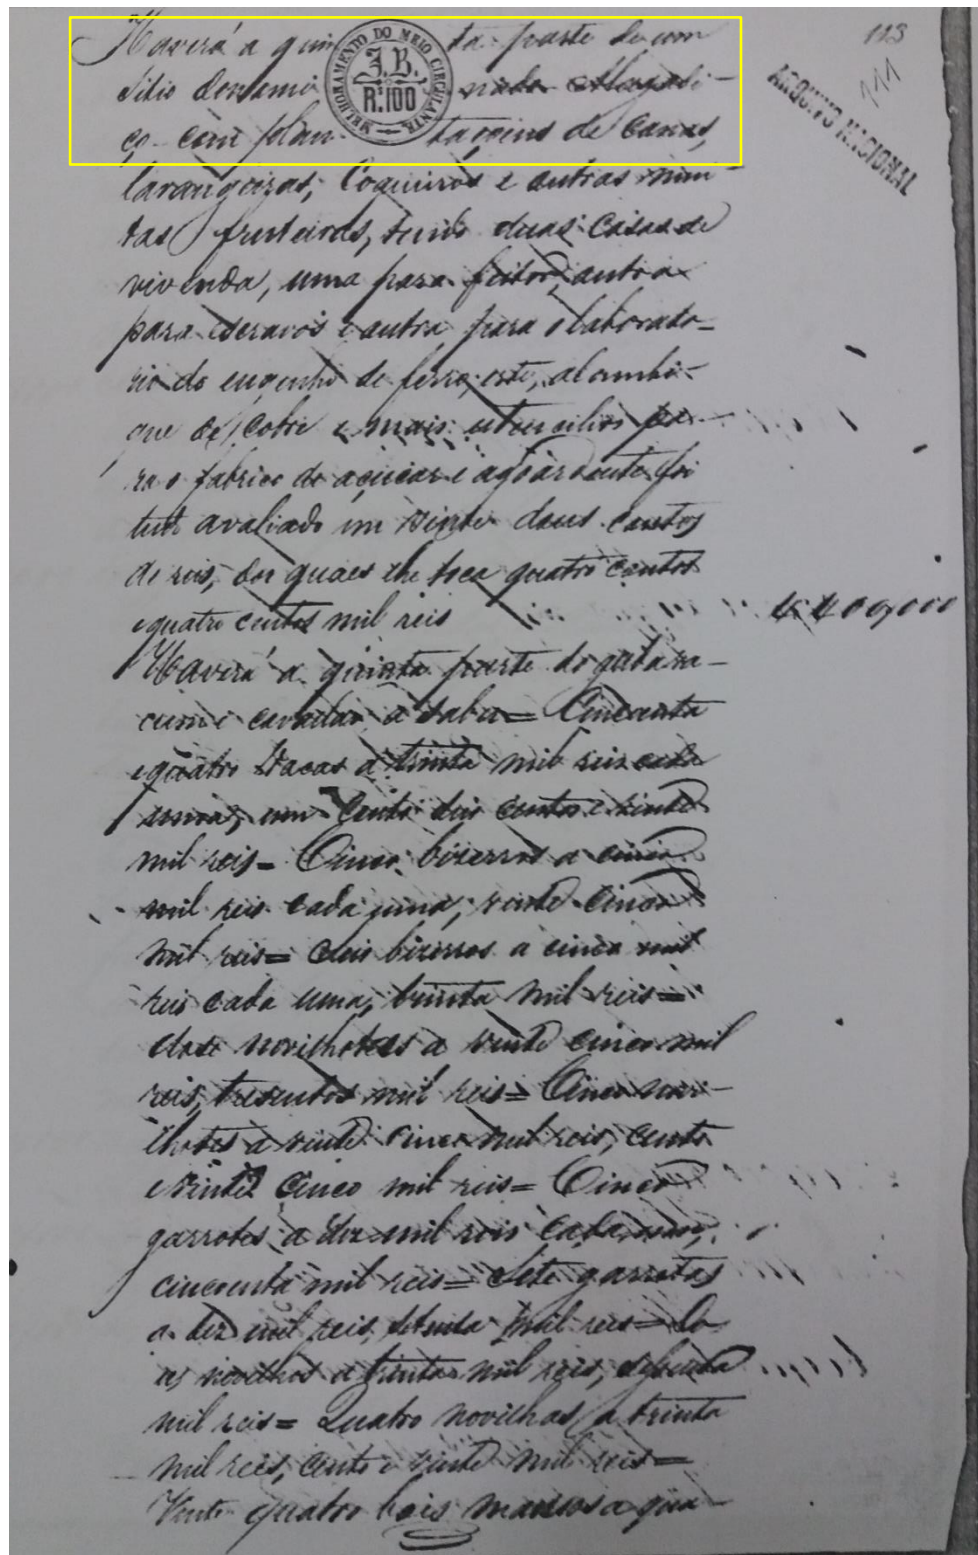 Haverá a quin ta parte de um
113
111
ARQUIVO NACIONAL
MELHORAMENTO DO MEIO CIRCULANTE
J.B.
Rs. 100
sitio denomi nado
ço com plan tações de canas,
larangeiras, Coqueiros e outras mui-
tas fruteiras, tendo duas casas de
vivenda, uma para feitor, outra
para escravos e outra para o laborato-
rio do engenho de ferro, este, alambi-
que de cobre e mais utencilios pa-
ra o fabrico de açucar e agoardente foi
tudo avaliado em vinte dous contos
de reis, dos quaes lhe toca quatro contos
e quatro centos mil reis 4,400,000
Haverá a quinta parte do gado va-
cum e cavallar a saber= Cincoenta
e quatro Vacas a trinta mil reis cada
uma, um Conto seis centos e vinte
mil reis= Cinco bizerros a cinco
mil reis cada uma, vinte cinco
mil reis= seis bizerros a cinco mil
reis cada uma, trinta mil reis=
dose novilhotas a vinte cinco mil
reis, tresentos mil reis= Cinco novi-
lhotes a vinte cinco mil reis, cento
e vinte Cinco mil reis= Cinco
garrotes a dez mil reis cada um,
cincoenta mil reis= Sete garrotas
a dez mil reis, setenta mil reis= Do-
us novilhos a trinta mil reis, sessenta
mil reis= Quatro novilhas a trinta
mil reis, cento e vinte mil reis=
Vinte quatro bois mansos a qua-